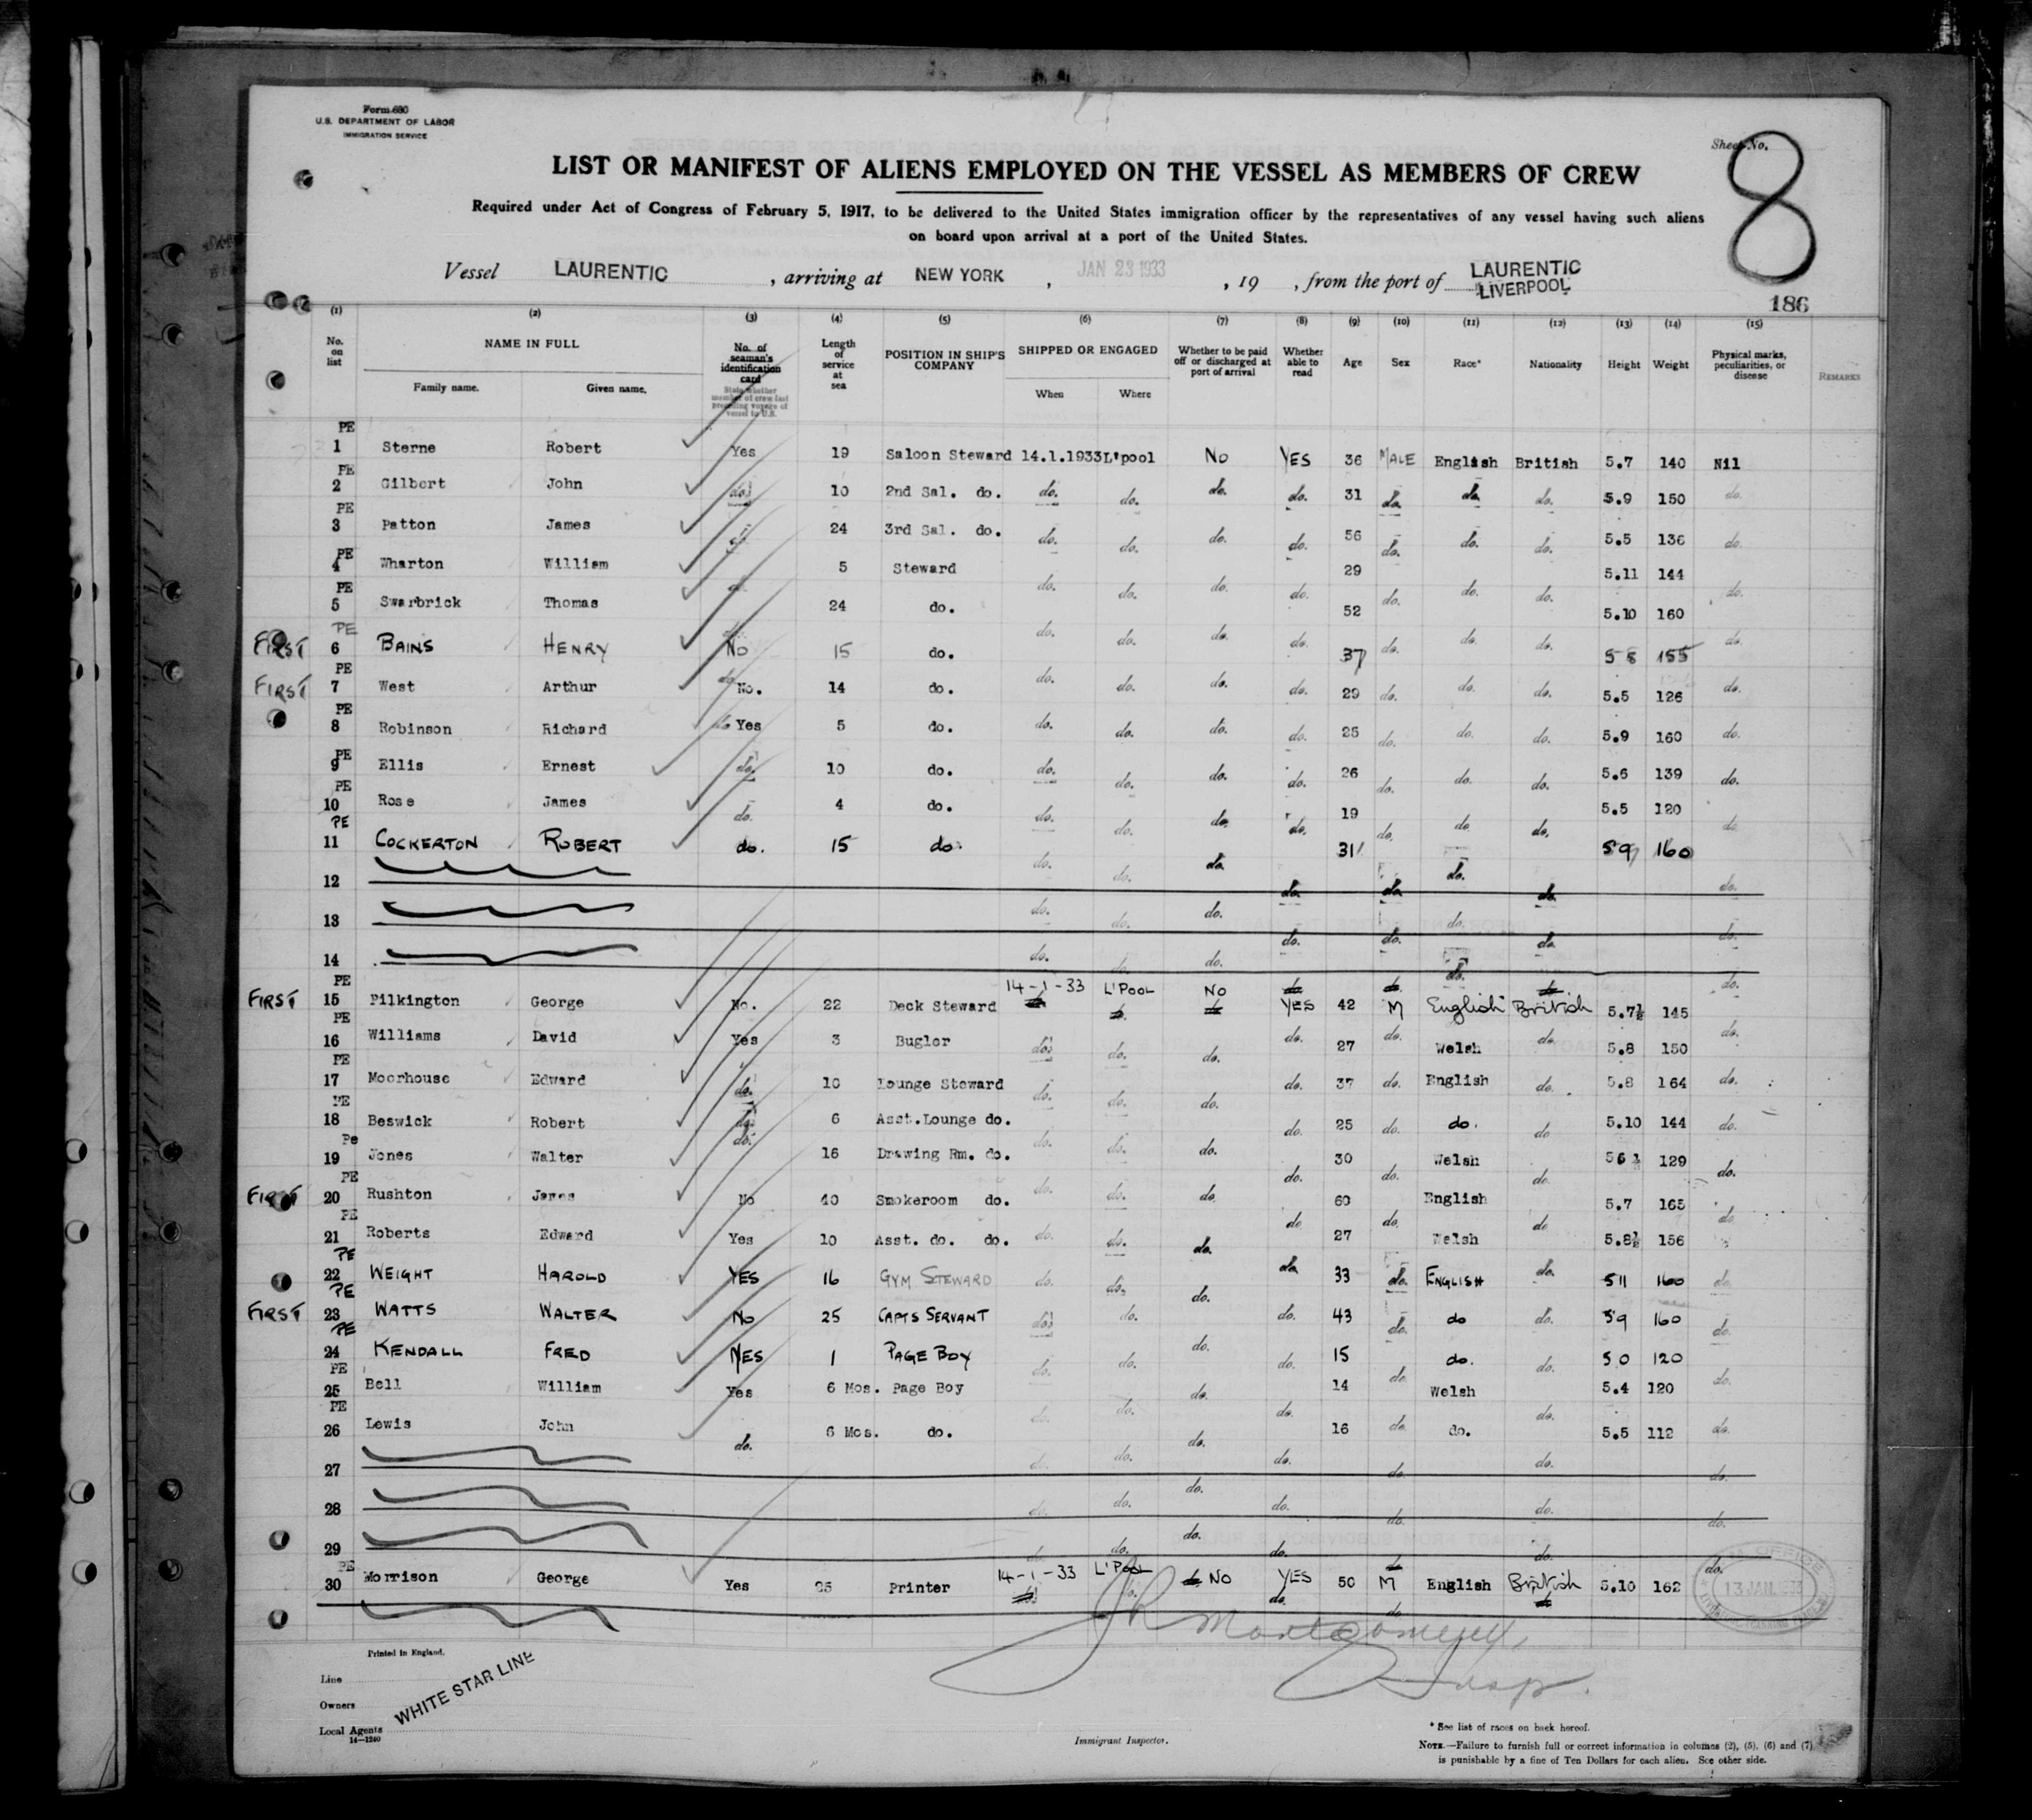 Form 680
U.S. DEPARTMENT OF LABOR
IMMIGRATION SERVICE
Sheet No. 8
LIST OR MANIFEST OF ALIENS EMPLOYED ON THE VESSEL AS MEMBERS OF CREW
Required under Act of Congress of February 5, 1917, to be delivered to the United States immigration officer by the representatives of any vessel having such aliens
on board upon arrival at a port of the United States.
Vessel LAURENTIC , arriving at NEW YORK , JAN 23 1933 , 19 , from the port of LAURENTIC LIVERPOOL
186
(1) (2) (3) (4) (5) (6) (7) (8) (9) (10) (11) (12) (13) (14) (15)
No. on list NAME IN FULL Family name. Given name. No. of seaman's identification card State whether member of crew last preceding voyage of vessel to U.S. Length of service at sea POSITION IN SHIP'S COMPANY SHIPPED OR ENGAGED When Where Whether to be paid off or discharged at port of arrival Whether able to read Age Sex Race* Nationality Height Weight Physical marks, peculiarities, or disease REMARKS
PE 1 Sterne Robert Yes 19 Saloon Steward 14.1.1933 L'pool No YES 36 MALE English British 5.7 140 Nil
PE 2 Gilbert John do. 10 2nd Sal. do. do. do. do. do. 31 do. do. do. 5.9 150 do.
PE 3 Patton James do. 24 3rd Sal. do. do. do. do. do. 56 do. do. do. 5.5 136 do.
PE 4 Wharton William do. 5 Steward do. do. do. do. 29 do. do. do. 5.11 144 do.
PE 5 Swarbrick Thomas do. 24 do. do. do. do. do. 52 do. do. do. 5.10 160 do.
FIRST PE 6 BAINS HENRY No 15 do. do. do. do. do. 37 do. do. do. 5 8 155 do.
FIRST PE 7 West Arthur No. 14 do. do. do. do. do. 29 do. do. do. 5.5 126 do.
PE 8 Robinson Richard do Yes 5 do. do. do. do. do. 25 do. do. do. 5.9 160 do.
PE 9 Ellis Ernest do. 10 do. do. do. do. do. 26 do. do. do. 5.6 139 do.
PE 10 Rose James do. 4 do. do. do. do. do. 19 do. do. do. 5.5 120 do.
PE 11 COCKERTON ROBERT do. 15 do. do. do. do. do. 31 do. do. do. 5 9 160 do.
12 do. do. do. do. do. do.
13 do. do. do. do. do. do. do. do.
14 do. do. do. do. do. do. do. do.
FIRST PE 15 Pilkington George No. 22 Deck Steward 14-1-33 L'POOL NO YES 42 M English British 5.7½ 145
PE 16 Williams David Yes 3 Bugler do. do. do. do. 27 do. Welsh do. 5.8 150 do.
PE 17 Moorhouse Edward do. 10 Lounge Steward do. do. do. do. 37 do. English do. 5.8 164 do.
PE 18 Beswick Robert do. 6 Asst.Lounge do. do. do. do. do. 25 do. do. do 5.10 144 do.
Pe 19 Jones Walter do. 16 Drawing Rm. do. do. do. do. do. 30 do. Welsh do. 5 6 ½ 129 do.
FIRST PE 20 Rushton James No 40 Smokeroom do. do. do. do. do 60 do. English do 5.7 165 do.
PE 21 Roberts Edward Yes 10 Asst. do. do. do. do. do. do. 27 do. Welsh do. 5.8½ 156
PE 22 WEIGHT HAROLD YES 16 GYM STEWARD do. do. do. do. 33 do. ENGLISH do. 5 11 160 do.
FIRST PE 23 WATTS WALTER NO 25 CAPTS SERVANT do. do. do. do. 43 do. do do. 5 9 160 do.
PE 24 KENDALL FRED YES 1 PAGE BOY do. do. do. do. 15 do. do. do. 5 0 120 do.
PE 25 Bell William Yes 6 Mos. Page Boy do. do. do. do. 14 do Welsh do. 5.4 120 do.
PE 26 Lewis John do. 6 Mos. do. do. do. do. do. 16 do. do. do. 5.5 112 do.
27 do. do. do. do. do. do.
28 do. do. do. do. do. do.
29 do. do. do. do. do. do.
PE 30 Morrison George Yes 25 Printer 14-1-33 L'POOL NO YES 50 M English British 5.10 162
13 JAN. 1933
J R Montgomery,
Insp.
Printed in England.
Line
WHITE STAR LINE
Owners
Local Agents
14—1240
Immigrant Inspector.
* See list of races on back hereof.
NOTE.—Failure to furnish full or correct information in columns (2), (5), (6) and (7)
is punishable by a fine of Ten Dollars for each alien. See other side.